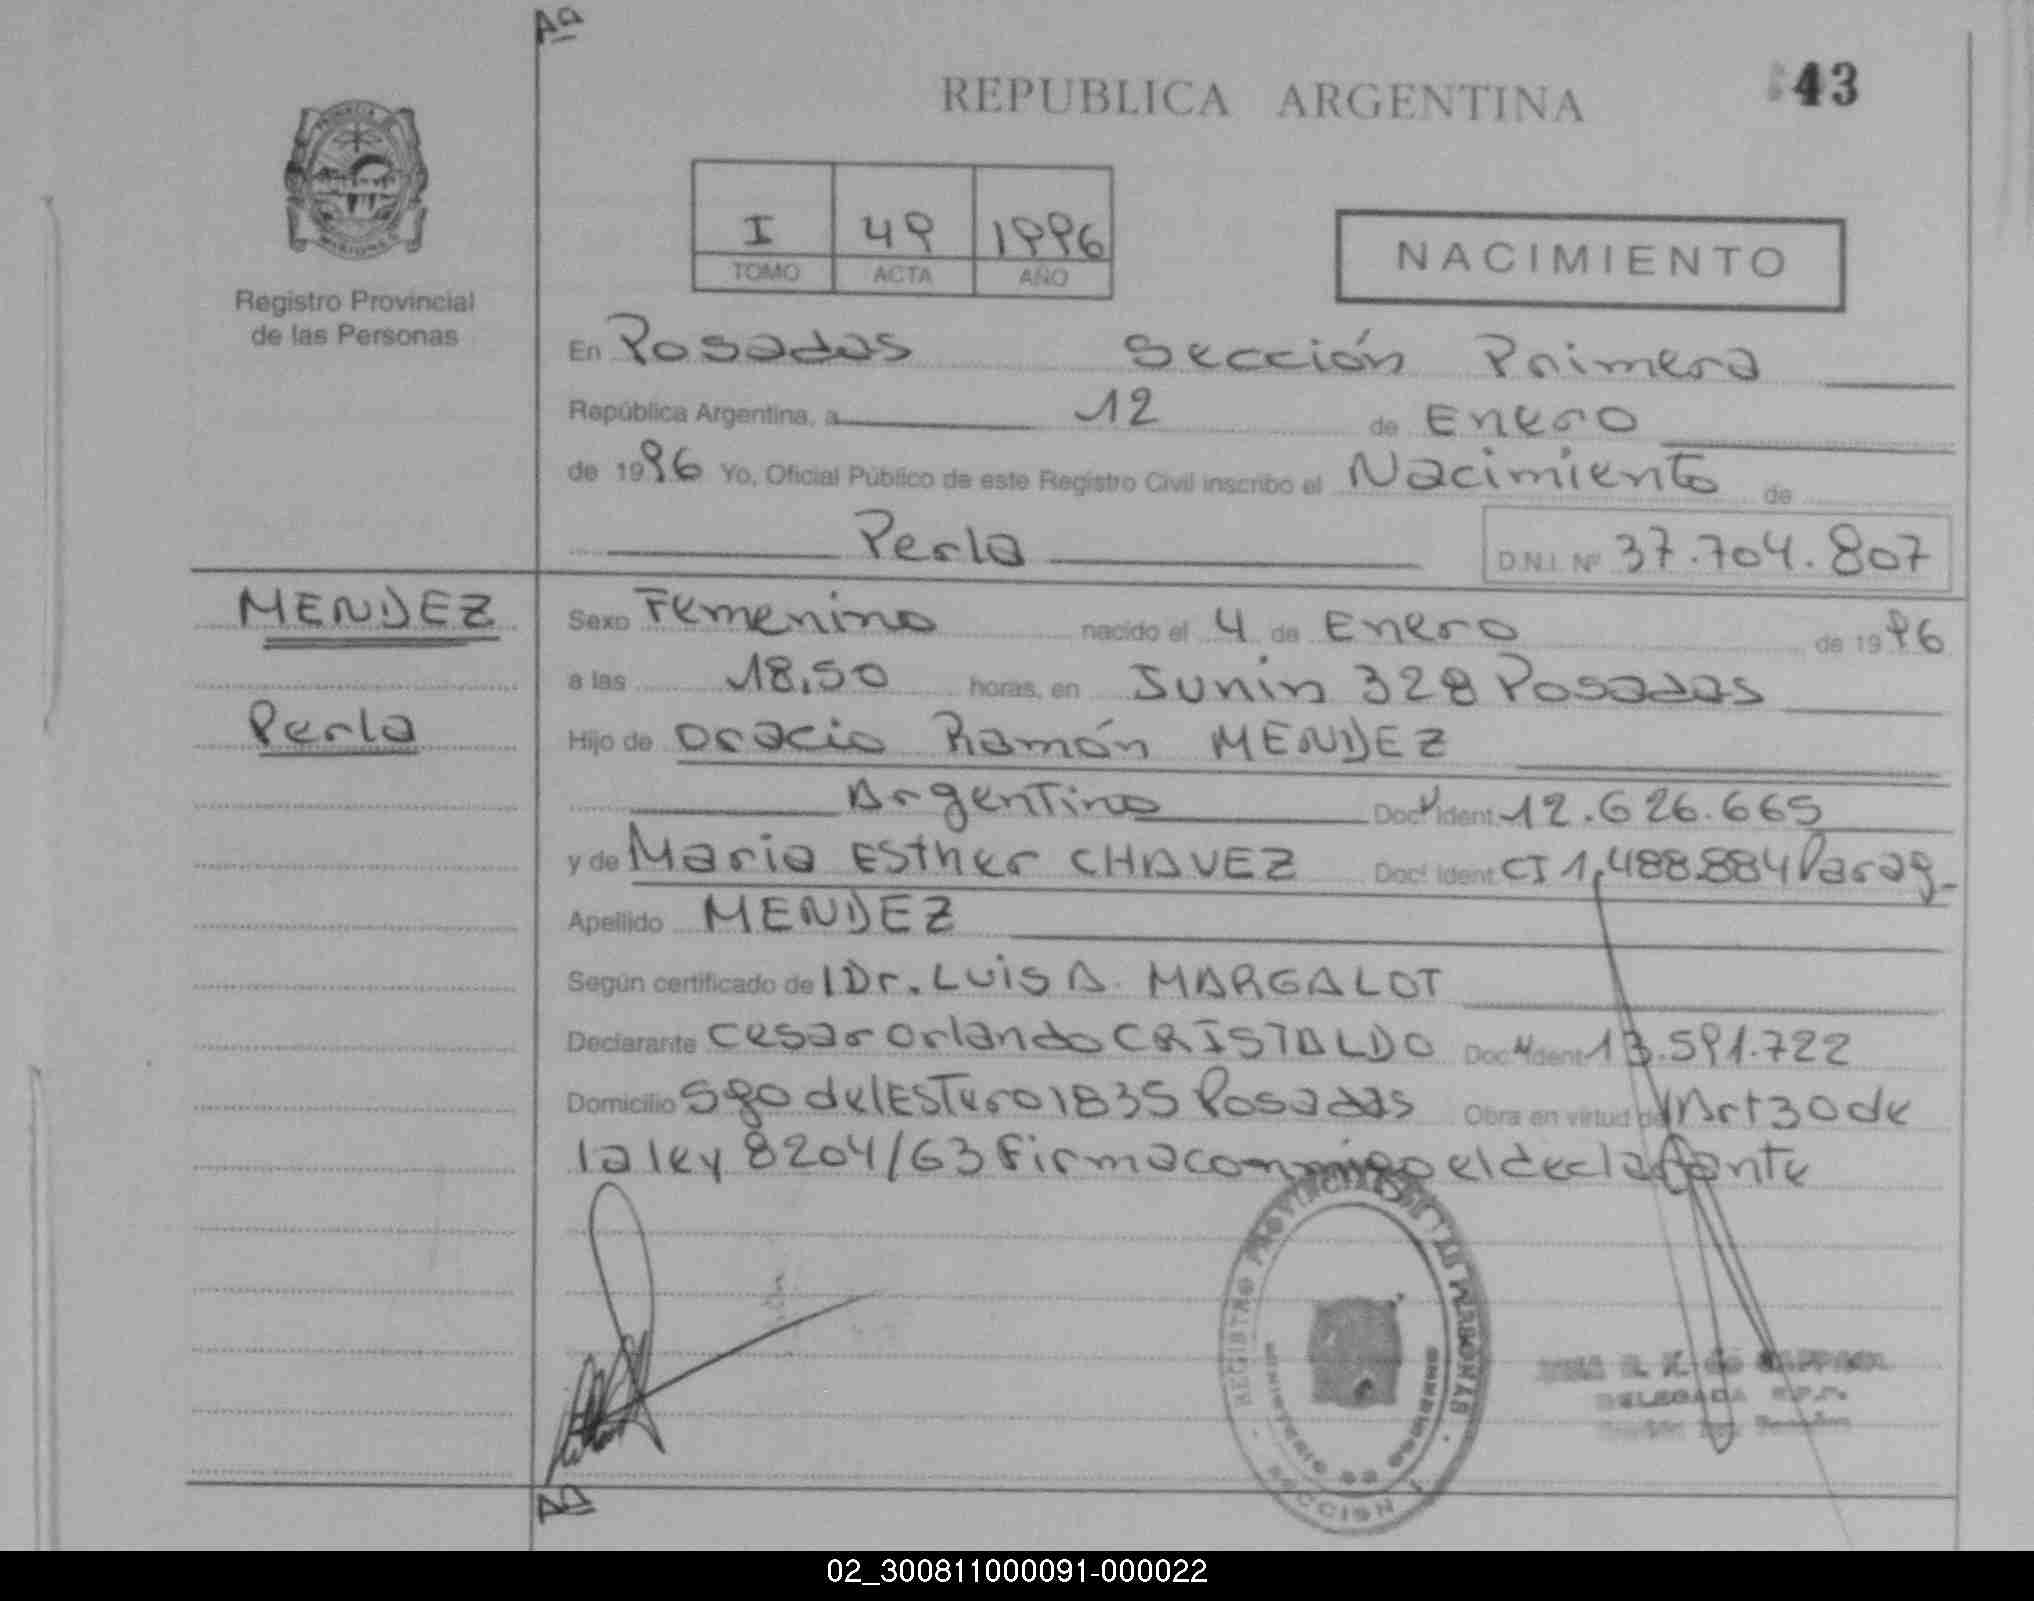 Aª
REPUBLICA ARGENTINA
43
I 49 1996
TOMO ACTA AÑO
NACIMIENTO
Registro Provincial
de las Personas
En Posadas Sección Primera
República Argentina, a 12 de Enero
de 1996 Yo, Oficial Público de este Registro Civil inscribo el Nacimiento de
Perla D.N.I. Nº 37.704.807
MENDEZ
Perla
Sexo Femenino nacido el 4 de Enero de 1996
a las 18,50 horas, en Junin 328 Posadas
Hijo de Oracio Ramón MENDEZ
Argentino Doc. Ident. 12.626.665
y de Maria Esther CHAVEZ Doc. Ident. CI 1,488.884 Parag.
Apellido MENDEZ
Según certificado de l Dr. Luis A. MARGALOT
Declarante Cesar Orlando CRISTALDO Doc. Ident 13.591.722
Domicilio Sgo del Estero 1835 Posadas Obra en virtud del Art 30 de
la ley 8204/63 firma conmigo el declarante
REGISTRO PROVINCIAL DE LAS PERSONAS
MINISTERIO DE GOBIERNO
SECCION 1
DELEGADA R.P.P.
Aª
02_300811000091-000022